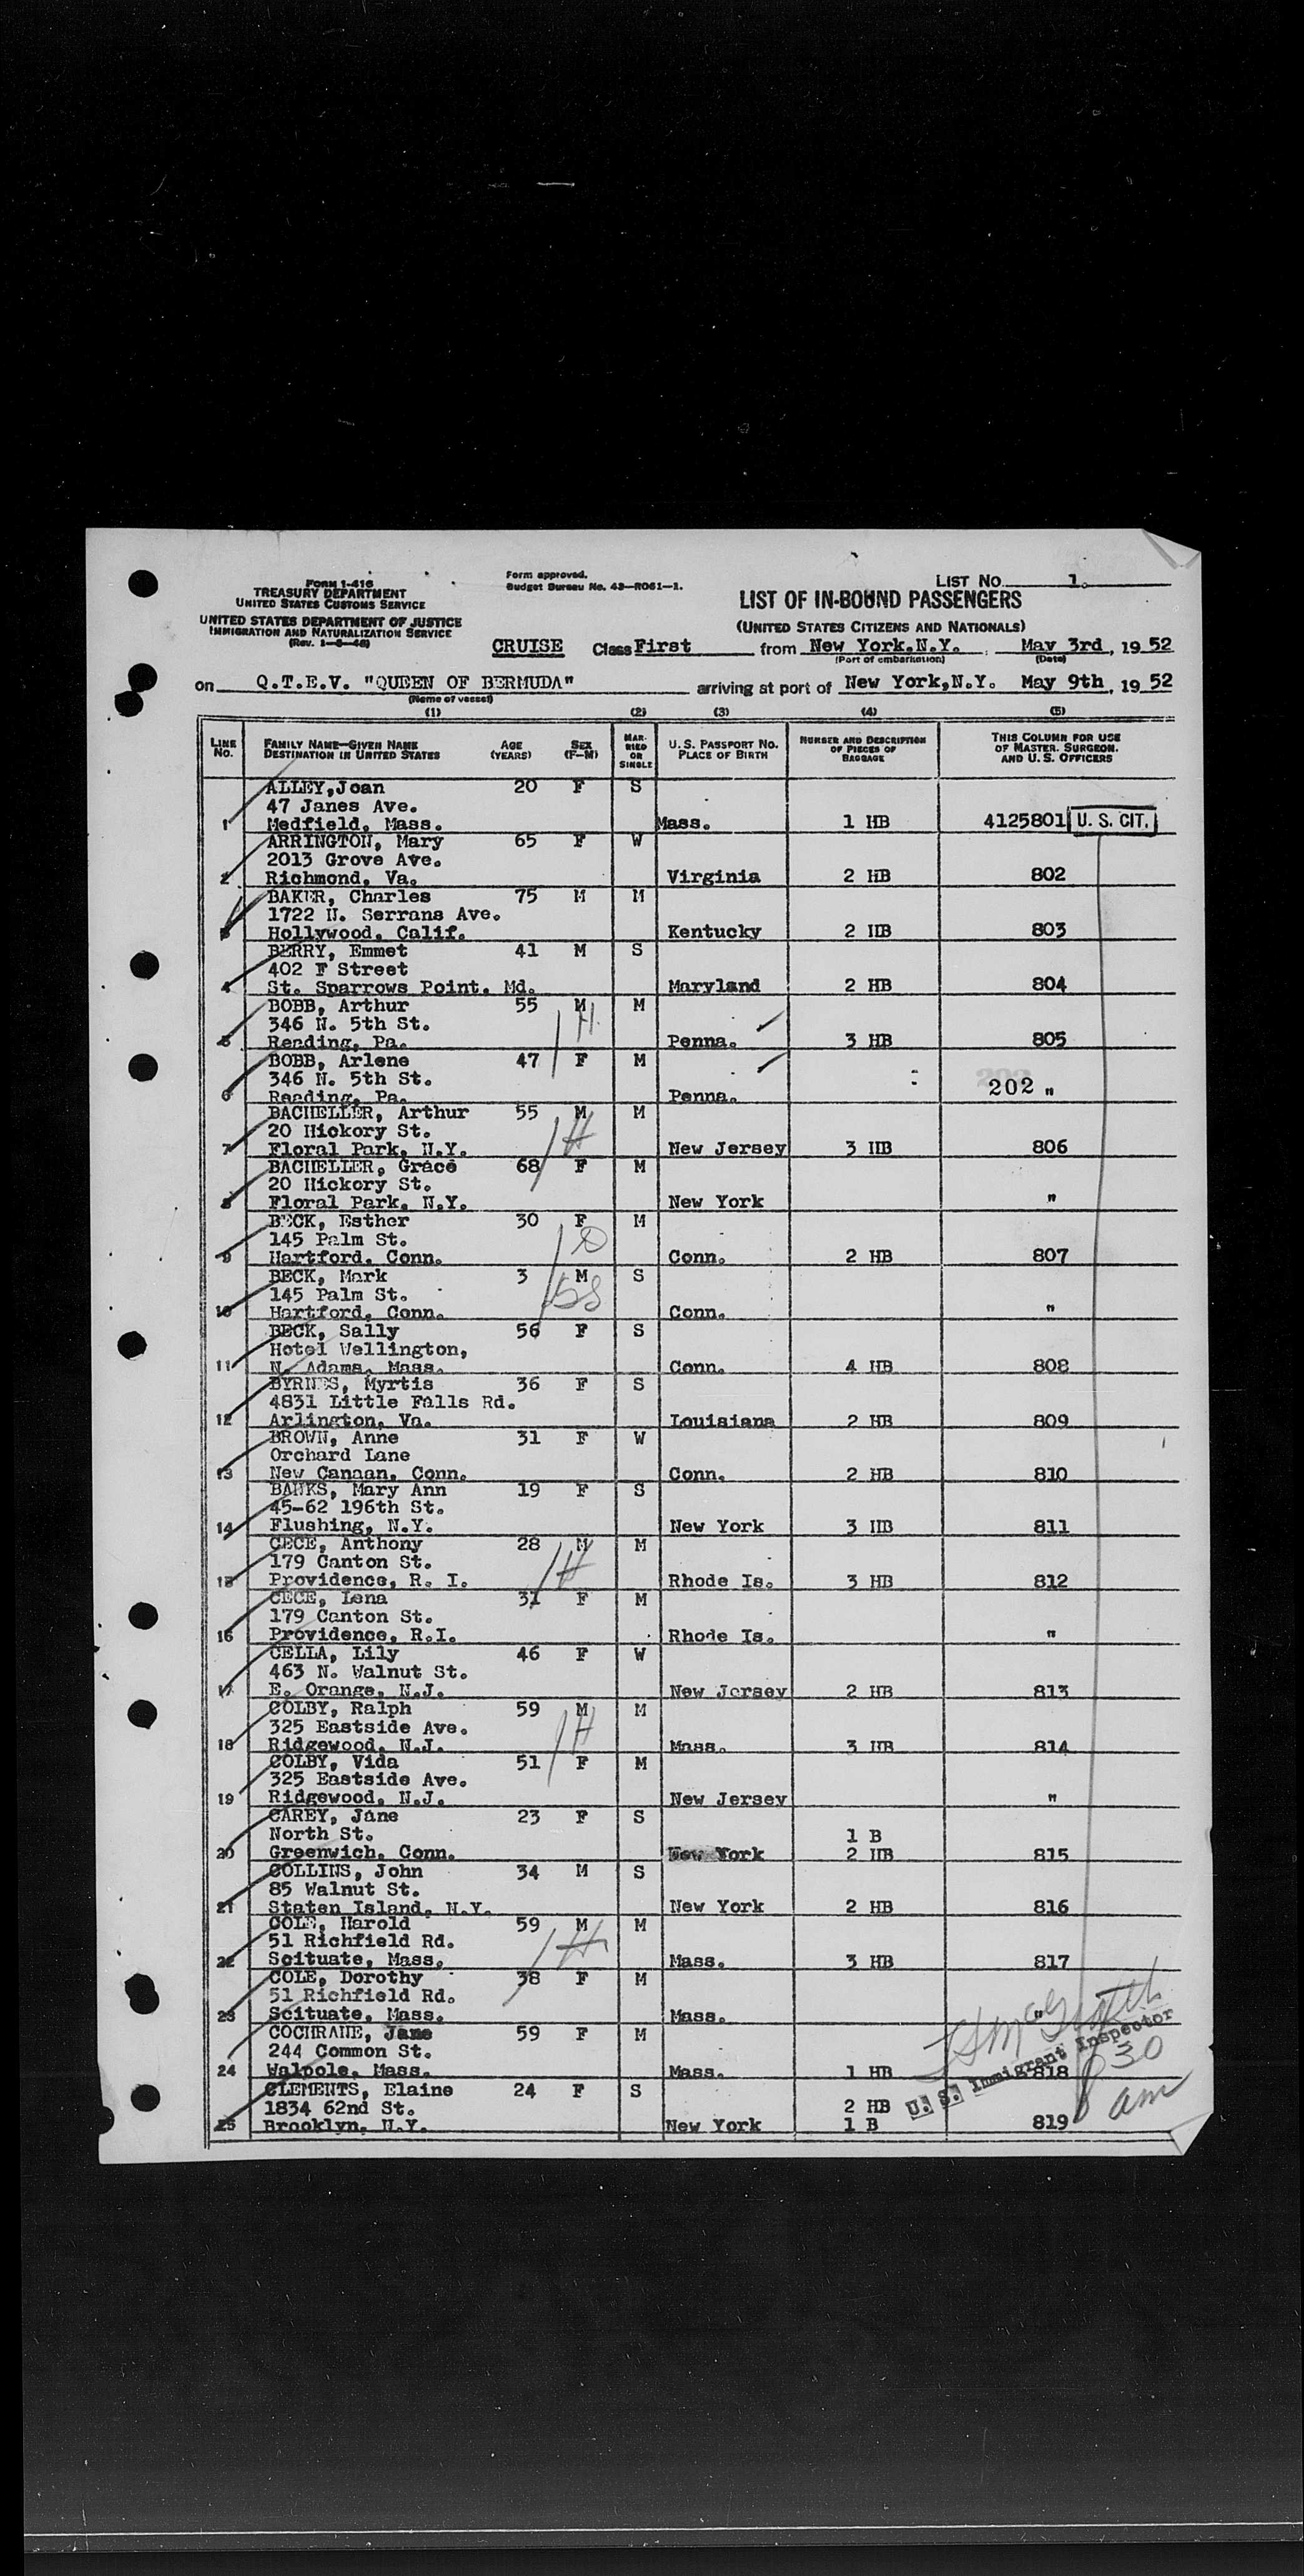 Form I-416
TREASURY DEPARTMENT
UNITED STATES CUSTOMS SERVICE
UNITED STATES DEPARTMENT OF JUSTICE
IMMIGRATION AND NATURALIZATION SERVICE
Form approved.
Budget Bureau No. 43—R061—1.
LIST NO. 1.
LIST OF IN-BOUND PASSENGERS
(UNITED STATES CITIZENS AND NATIONALS)
CRUISE Class First from New York.N.Y. May 3rd, 19 52
(Port of embarkation) (Date)
on Q.T.E.V. "QUEEN OF BERMUDA" arriving at port of New York,N.Y. May 9th, 19 52
(Name of vessel)
(1) (2) (3) (4) (5)
LINE NO. FAMILY NAME—GIVEN NAME DESTINATION IN UNITED STATES AGE (YEARS) SEX (F—M) MARRIED OR SINGLE U. S. PASSPORT NO. PLACE OF BIRTH NUMBER AND DESCRIPTION OF PIECES OF BAGGAGE THIS COLUMN FOR USE OF MASTER, SURGEON, AND U. S. OFFICERS
ALLEY,Joan 20 F S
47 Janes Ave.
1 Medfield, Mass. Mass. 1 HB 4125801 U. S. CIT.
ARRINGTON, Mary 65 F W
2013 Grove Ave.
2 Richmond, Va. Virginia 2 HB 802
BAKER, Charles 75 M M
1722 N. Serrans Ave.
3 Hollywood, Calif. Kentucky 2 HB 803
BERRY, Emmet 41 M S
402 F Street
4 St. Sparrows Point, Md. Maryland 2 HB 804
BOBB, Arthur 55 M M
346 N. 5th St.
5 Reading, Pa. Penna. 3 HB 805
BOBB, Arlene 47 F M
346 N. 5th St.
6 Reading, Pa. Penna. 202 "
BACHELLER, Arthur 55 M M
20 Hickory St.
7 Floral Park, N.Y. New Jersey 3 HB 806
BACHELLER, Grace 68 F M
20 Hickory St.
8 Floral Park, N.Y. New York "
BECK, Esther 30 F M
145 Palm St.
9 Hartford, Conn. Conn. 2 HB 807
BECK, Mark 3 M S
145 Palm St.
10 Hartford, Conn. Conn. "
BECK, Sally 56 F S
Hotel Wellington,
11 N. Adams, Mass. Conn. 4 HB 808
BYRNES, Myrtis 36 F S
4831 Little Falls Rd.
12 Arlington, Va. Louisiana 2 HB 809
BROWN, Anne 31 F W
Orchard Lane
13 New Canaan, Conn. Conn. 2 HB 810
BANKS, Mary Ann 19 F S
45-62 196th St.
14 Flushing, N.Y. New York 3 HB 811
CECE, Anthony 28 M M
179 Canton St.
15 Providence, R. I. Rhode Is. 3 HB 812
CECE, Lena 31 F M
179 Canton St.
16 Providence, R.I. Rhode Is. "
CELLA, Lily 46 F W
463 N. Walnut St.
17 E. Orange, N.J. New Jersey 2 HB 813
COLBY, Ralph 59 M M
325 Eastside Ave.
18 Ridgewood, N.J. Mass. 3 HB 814
COLBY, Vida 51 F M
325 Eastside Ave.
19 Ridgewood, N.J. New Jersey "
CAREY, Jane 23 F S
North St. 1 B
20 Greenwich, Conn. New York 2 HB 815
COLLINS, John 34 M S
85 Walnut St.
21 Staten Island, N.Y. New York 2 HB 816
COLE, Harold 59 M M
51 Richfield Rd.
22 Scituate, Mass. Mass. 3 HB 817
COLE, Dorothy 38 F M
51 Richfield Rd.
23 Scituate, Mass. Mass. "
COCHRANE, Jane 59 F M
244 Common St.
24 Walpole, Mass. Mass. 1 HB 818
CLEMENTS, Elaine 24 F S
1834 62nd St. 2 HB
25 Brooklyn, N.Y. New York 1 B 819
U. S. Immigrant Inspector
830
am